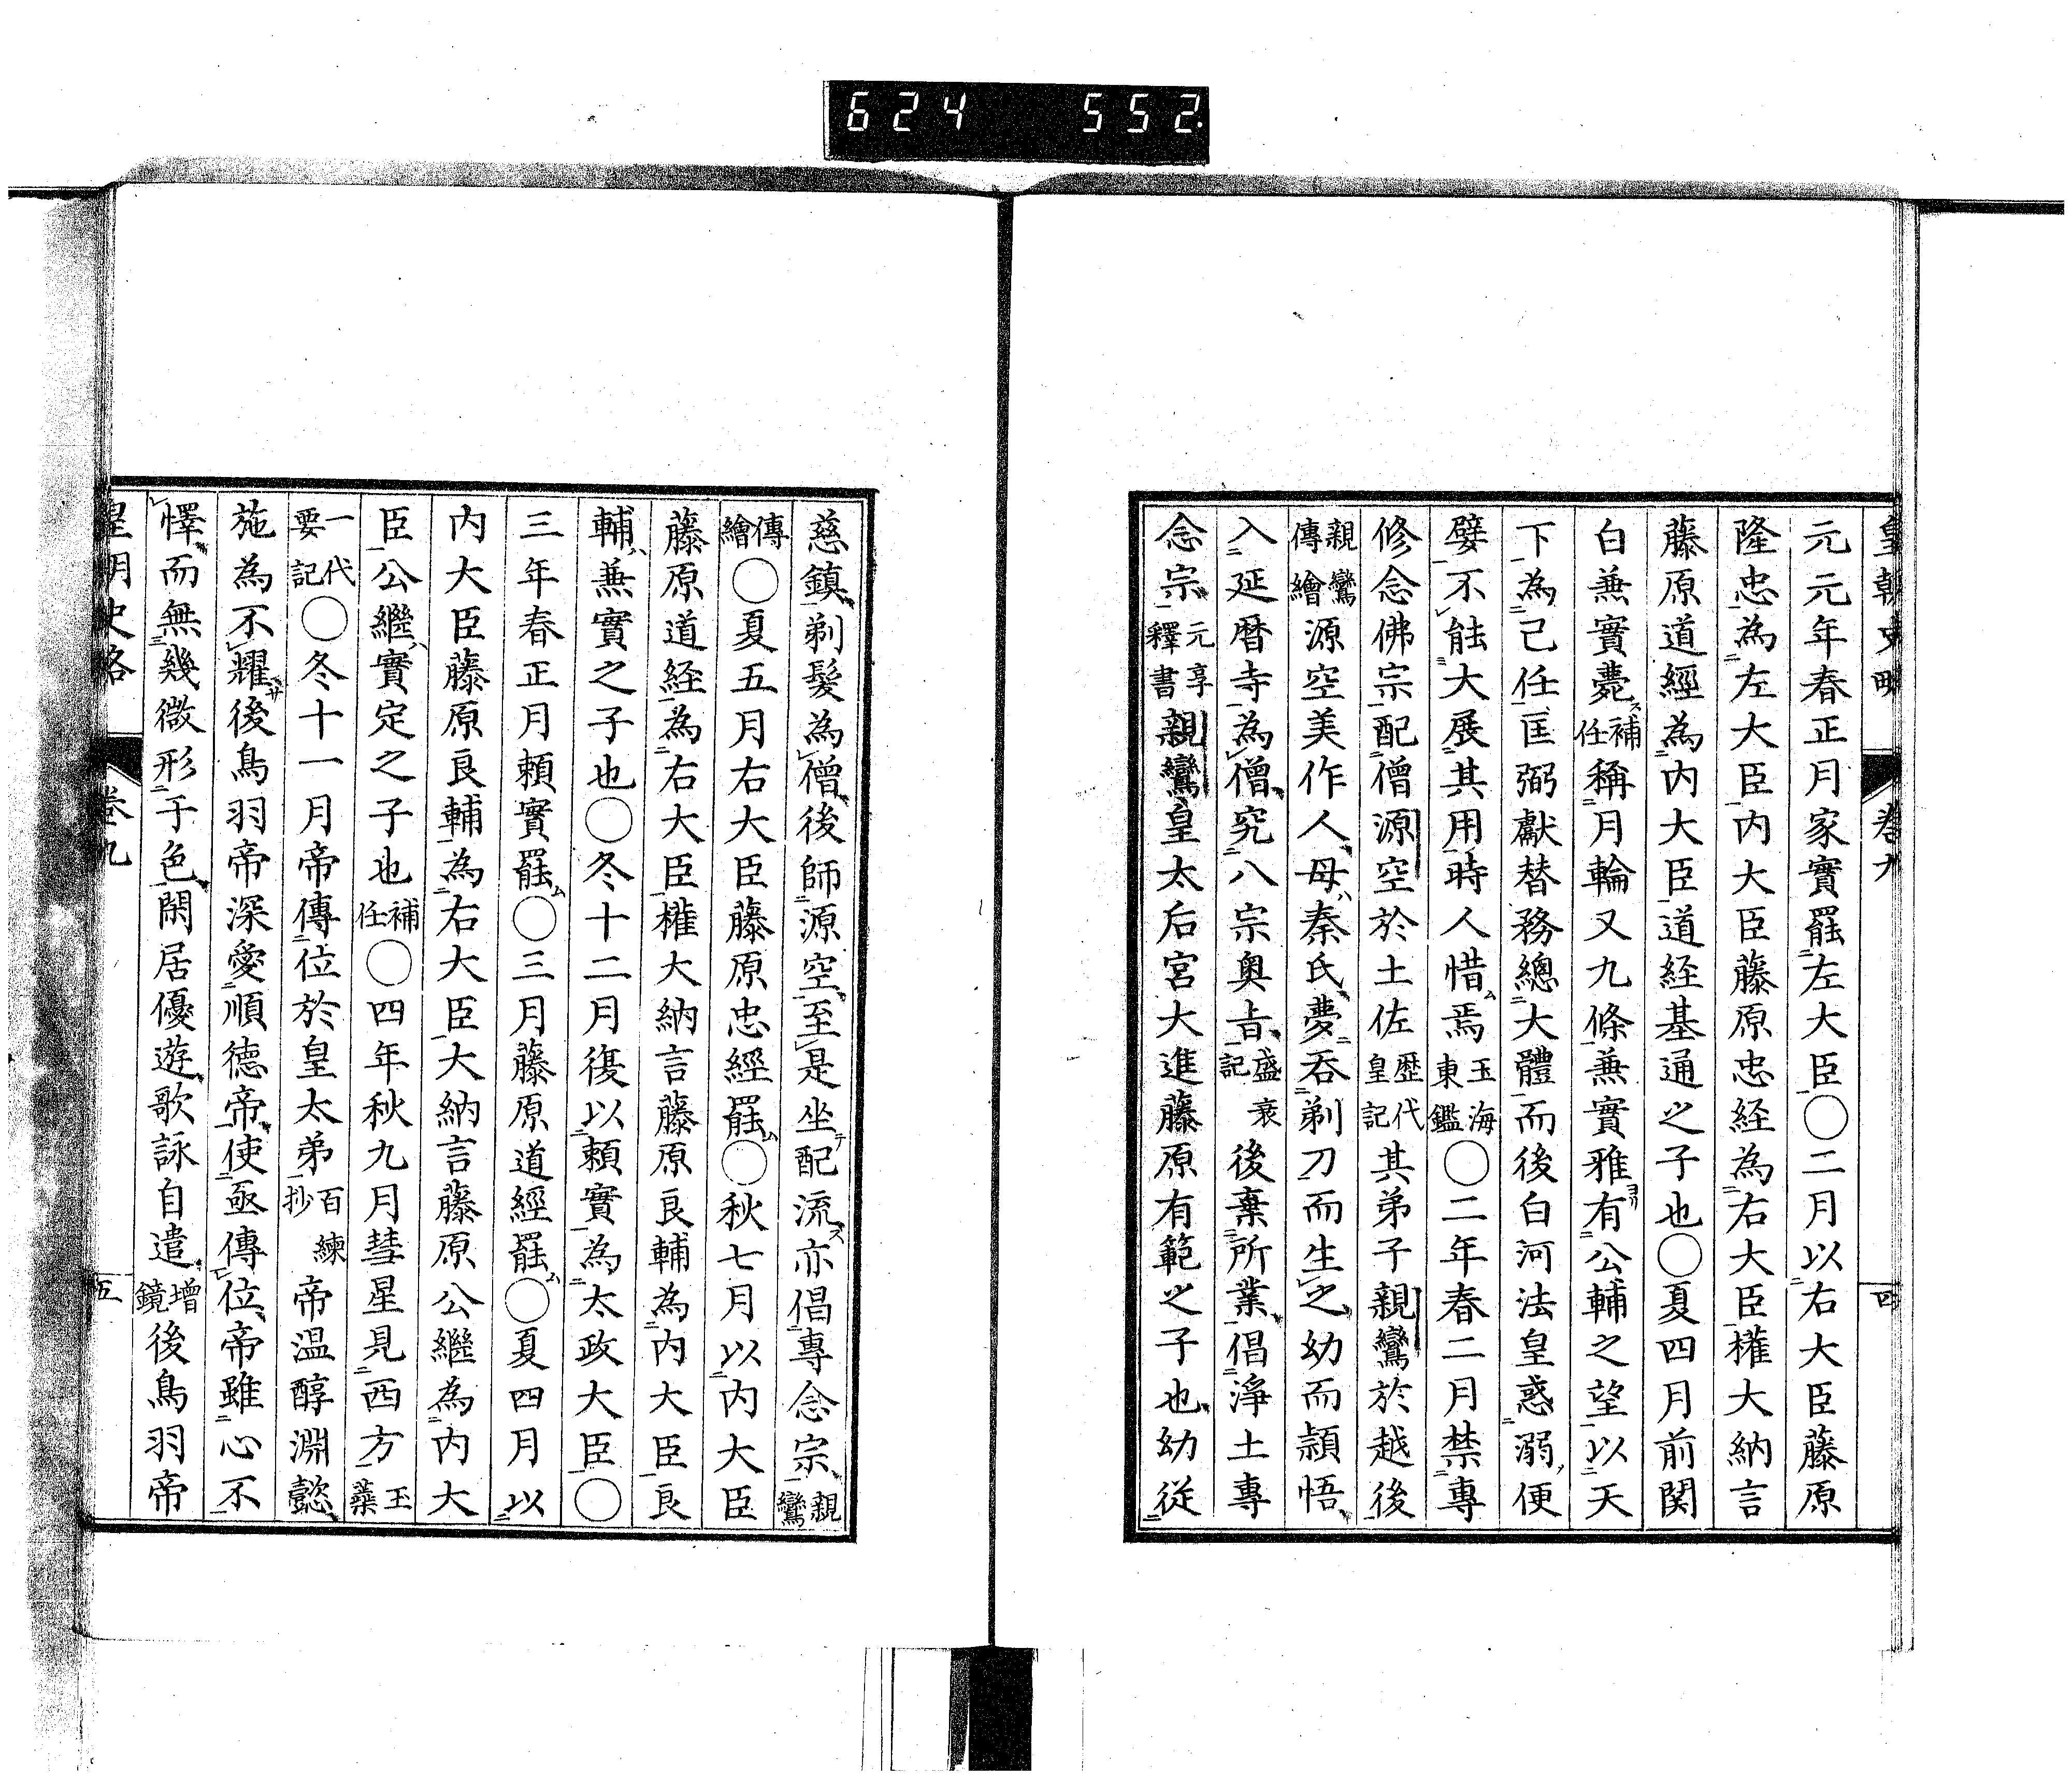 624 552
皇朝史略 卷九 四
元元年春正月家實罷左大臣〇二月以右大臣藤原
隆忠為左大臣内大臣藤原忠経為右大臣權大納言
藤原道經為内大臣道経基通之子也〇夏四月前関
白兼實薨補任稱月輪又九條兼實雅有公輔之望以天
下為己任匡弼獻替務總大體而後白河法皇惑溺便
嬖不能大展其用時人惜焉玉海東鑑〇二年春二月禁專
修念佛宗配僧源空於土佐歴代皇記其弟子親鸞於越後
親鸞傳繪源空美作人母秦氏夢吞剃刀而生之幼而頴悟
入延暦寺為僧究八宗奥旨盛衰記後棄所業倡淨土專
念宗元享釋書親鸞皇太后宮大進藤原有範之子也幼從
慈鎮剃髮為僧後師源空至是坐配流亦倡專念宗親鸞
傳繪〇夏五月右大臣藤原忠經罷〇秋七月以内大臣
藤原道経為右大臣權大納言藤原良輔為内大臣良
輔兼實之子也〇冬十二月復以頼實為太政大臣〇
三年春正月頼實罷〇三月藤原道經罷〇夏四月以
内大臣藤原良輔為右大臣大納言藤原公繼為内大
臣公繼實定之子也補任〇四年秋九月彗星見西方玉蘂
一代要記〇冬十一月帝傳位於皇太弟百練抄帝温醇淵懿
施為不耀後鳥羽帝深愛順德帝使亟傳位帝雖心不
懌而無幾微形于色閑居優遊歌詠自遣增鏡後鳥羽帝
皇朝史略 卷九 五